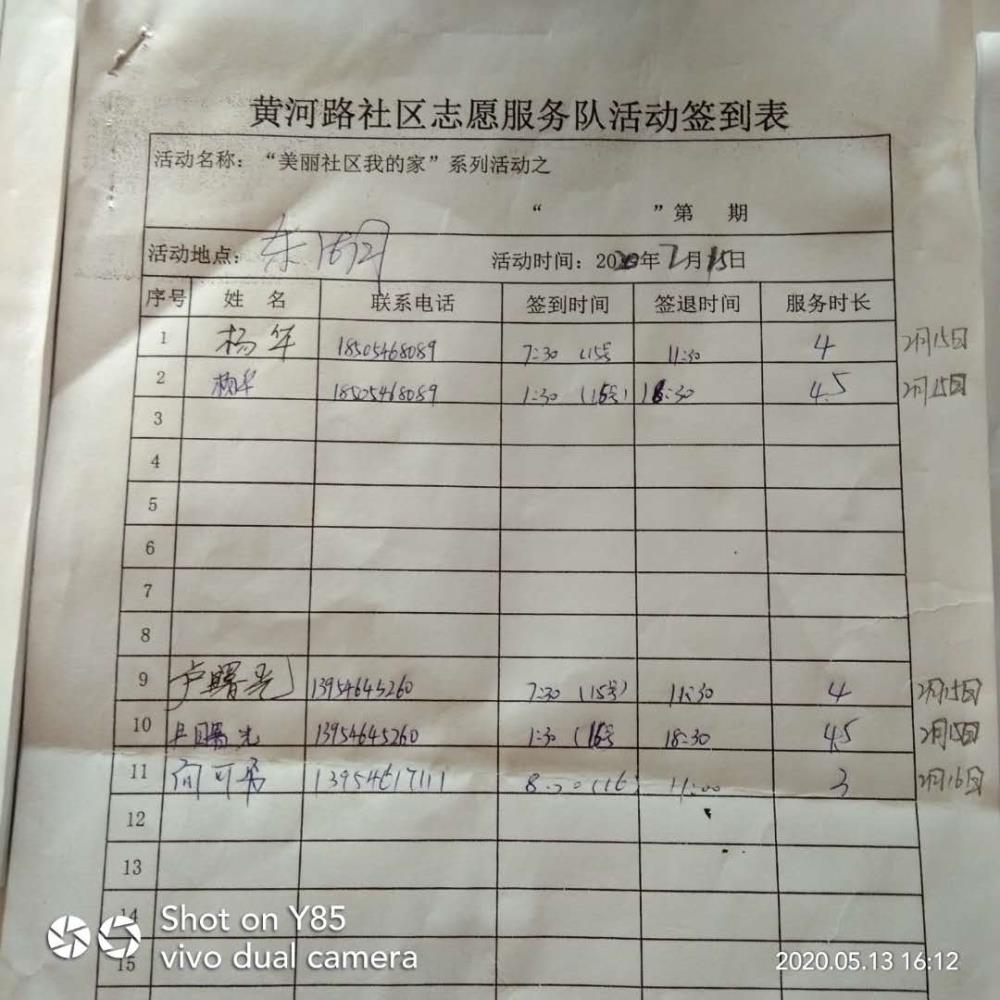 黄河路社区志愿服务队活动签到表
活动名称：“美丽社区我的家”系列活动之
“ ”第 期
活动地点： 活动时间：2020年2月15日
序号 姓 名 联系电话 签到时间 签退时间 服务时长
1 杨华 18505468089 7:30 (15号 11:30 4 2月15日
2 杨华 18505468089 1:30 (15号) 18:30 4.5 2月15日
3
4
5
6
7
8
9 卢曙光 13954645260 7:30 (15号) 11:30 4 2月15日
10 卢曙光 13954645260 1:30 (15号 18:30 4.5 2月15日
11 13954617111 8:00 (16) 11:00 3 2月16日
12
13
14
15
Shot on Y85
vivo dual camera
2020.05.13 16:12